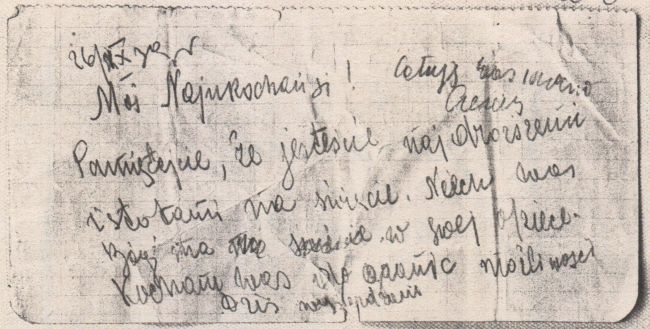 26/IX 39 r
Moi Najukochańsi !
Całuję was mocno
Pamiętajcie, że jesteście najdroższemi
istotami na świecie. Niech was
Bóg ma w swej opiece.
Kocham was do granic możliwości
Dziś